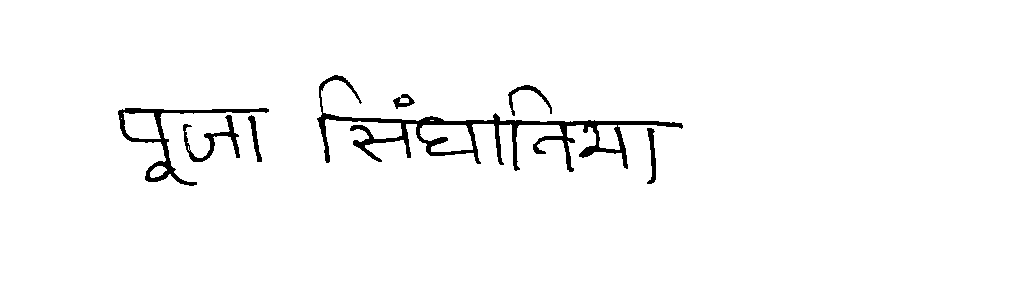 पूजा सिंघातिया